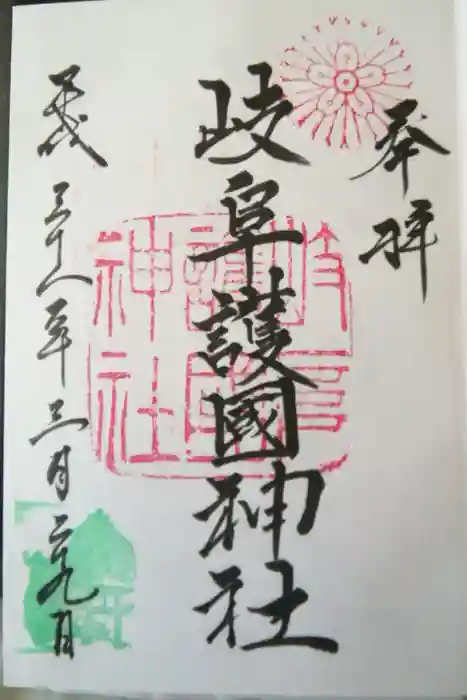 奉拝
岐阜護國神社
平成三十一年三月二十九日
岐阜
護國
神社